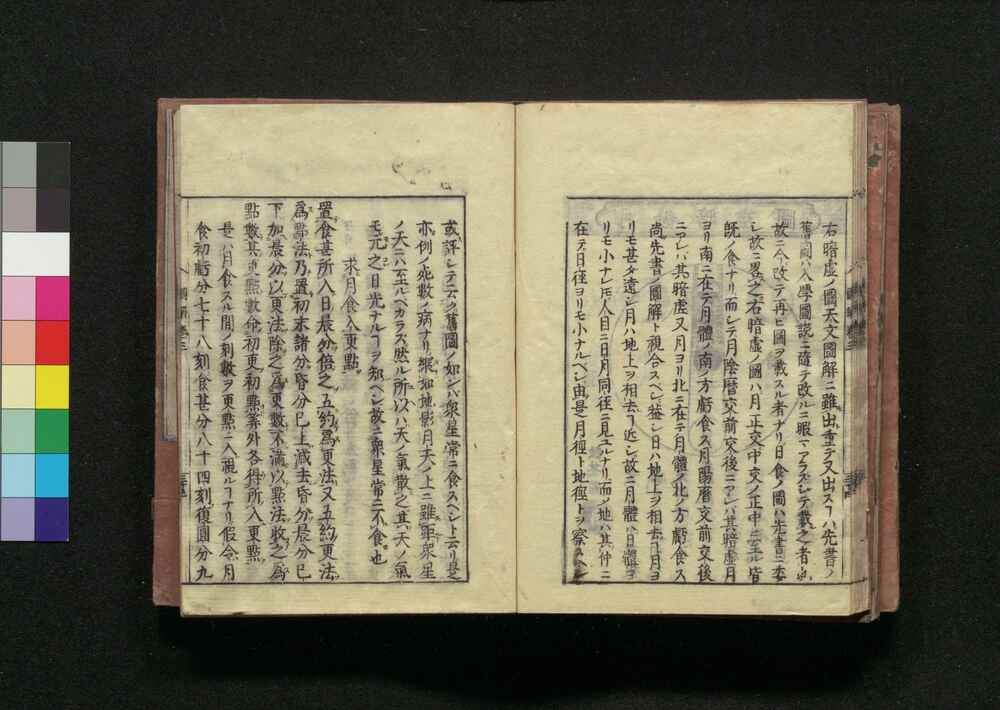 右暗虚ノ圖天文圖解ニ雖出重テ又出スヿハ先書ノ
舊圖ハ入學圖説ニ隨テ改ルニ暇マアラスシテ載之者也
故ニ今改テ再ヒ圖ヲ載スル者ナリ日食ノ圖ハ先書ニ委
シ故ニ畧之右暗虚ノ圖ハ月正交中交ノ正中ニ至ル皆
既ノ食ナリ而シテ月陰暦交前交後ニアレハ其暗虚月
ヨリ南ニ在テ月體ノ南ノ方虧食ス月陽暦交前交後
ニアレハ其暗虚又月ヨリ北ニ在テ月體ノ北ノ方虧食ス
尚先書ノ圖解ト視合スヘシ日ハ地上ヲ相去ヿ月ヨ
リモ甚タ遠シ月ハ地上ヲ相去ヿ近シ故ニ月體ハ日體ヨ
リモ小ナレ𪜈人目ニ日月同徑ニ見ユルナリ而シテ地ハ其仲ニ
在テ日徑ヨリモ小ナルヘシ由是月徑ト地徑トヲ察スヘシ
或評シテ云ク舊圖ノ如ンハ衆星常ニ食スヘシト云リ是
亦例ノ死數ノ病ナリ縱如地影月天ノ上ニ雖距衆星
ノ天ニハ至ルヘカラス然ル所以ハ天ノ氣散之其天ノ氣
モ元之日光ナルヿヲ知ヘシ故ニ衆星常ニ不食也
求月食入更點
置食甚所入日晨分倍之五約爲更法又五約更法
爲點法乃置初末諸分昏分已上減去昏分晨分已
下加晨分以更法除之爲更數不滿以點法收之爲
點數其更點數命初更初點算外各得所入更點
是ハ月食スル間ノ刻數ヲ更點ニ入ルヿナリ假令月
食初虧分七十八刻食甚分八十四刻復圓分九